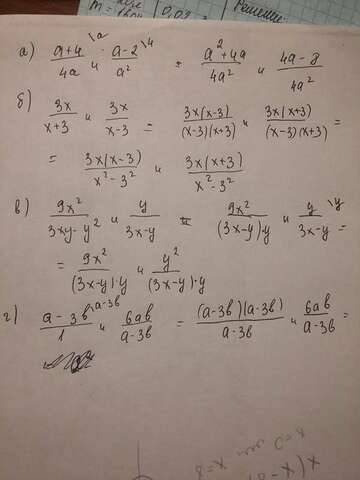 Решение:
а) (a+4)/4a \a и (a-2)/a² \4 = (a²+4a)/4a² и (4a-8)/4a²
б) 3x/(x+3) и 3x/(x-3) = 3x(x-3)/(x-3)(x+3) и 3x(x+3)/(x-3)(x+3) =
= 3x(x-3)/(x²-3²) и 3x(x+3)/(x²-3²)
в) 9x²/(3xy-y²) и y/(3x-y) = 9x²/(3x-y)y и y/(3x-y) \y =
= 9x²/(3x-y)·y и y²/(3x-y)·y
г) (a-3b)/1 \a-3b и 6ab/(a-3b) = (a-3b)(a-3b)/(a-3b) и 6ab/(a-3b) =